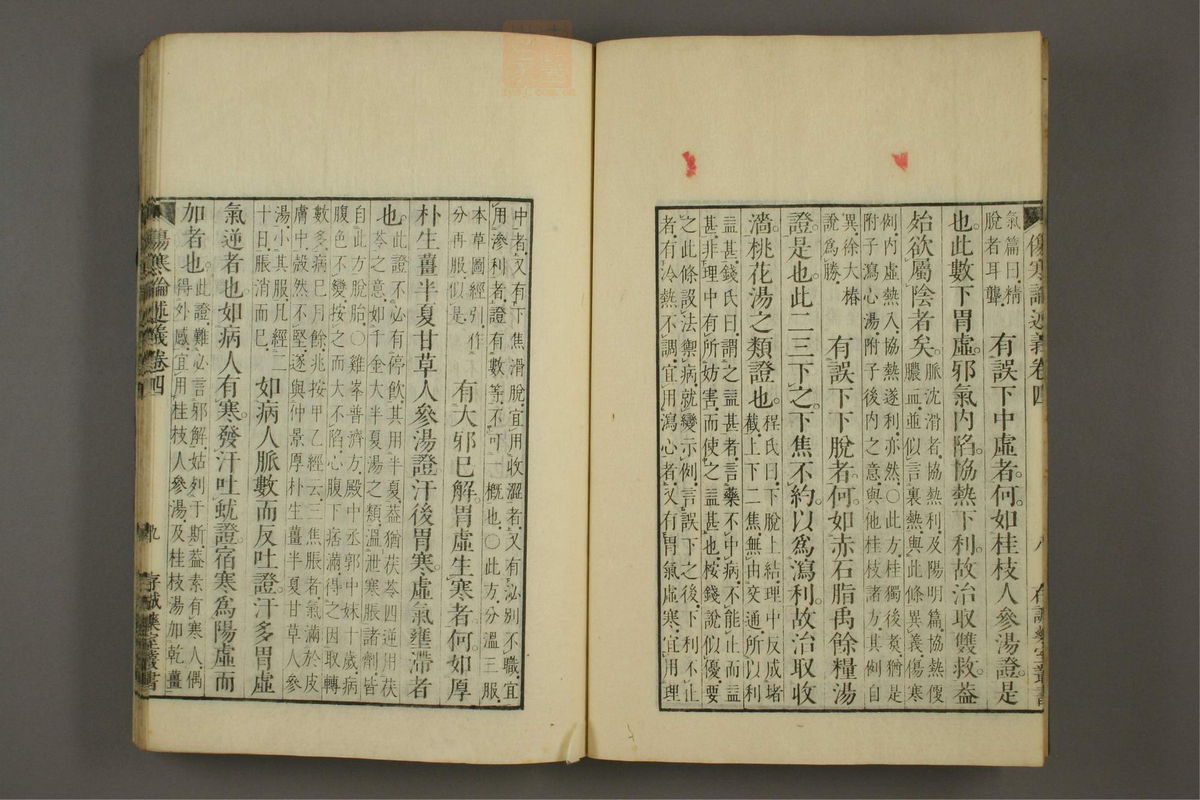 傷寒論述義卷四 八 存誠藥室叢書
氣篇曰精
脫者耳聾 有誤下中虛者何如桂枝人參湯證是
也此數下胃虛邪氣內陷協熱下利故治取雙救蓋
始欲屬陰者矣脈沈滑者協熱利及陽明篇協熱便
膿血並似言裏熱與此條異義傷寒
例內虛熱入協熱遂利亦然〇此方桂獨後煮猶是
附子瀉心湯附子後內之意與他桂枝諸方其例自
異徐大椿
說爲勝 有誤下下脫者何如赤石脂禹餘糧湯
證是也此二三下之下焦不約以爲瀉利故治取收
濇桃花湯之類證也程氏曰下脫上結理中反成堵
截上下二焦無由交通所以利
益甚錢氏曰謂之益甚者言藥不中病不能止而益
甚非理中有所妨害而使之益甚也桉錢說似優要
之此條設法禦病就變示例言誤下之後下利不止
者有冷熱不調宜用瀉心者又有胃氣虛寒宜用理
中者又有下焦滑脫宜用收澀者又有泌別不職宜
用滲利者證有數等不可一概也〇此方分溫三服
本草圖經引作
分再服似是 有大邪已解胃虛生寒者何如厚
朴生薑半夏甘草人參湯證汗後胃寒虛氣壅滯者
也此證不必有停飲其用半夏蓋猶茯苓四逆用茯
苓之意如千金大半夏湯之類溫泄寒脹諸劑皆
自此方脫胎〇雞峯普濟方殿中丞郭中妹十歲病
腹色不變按之而大不陷心腹下痞滿得之因取轉
數多病已月餘兆按甲乙經云三焦脹者氣滿於皮
膚中殼然不堅遂與仲景厚朴生薑半夏甘草人參
湯小其服凡經二
十日脹消而已 如病人脈數而反吐證汗多胃虛
氣逆者也如病人有寒發汗吐蚘證宿寒爲陽虛而
加者也此證難必言邪解姑列于斯蓋素有寒人偶
得外感宜用桂枝人參湯及桂枝湯加乾薑
傷寒論述義卷四 九 存誠藥室叢書